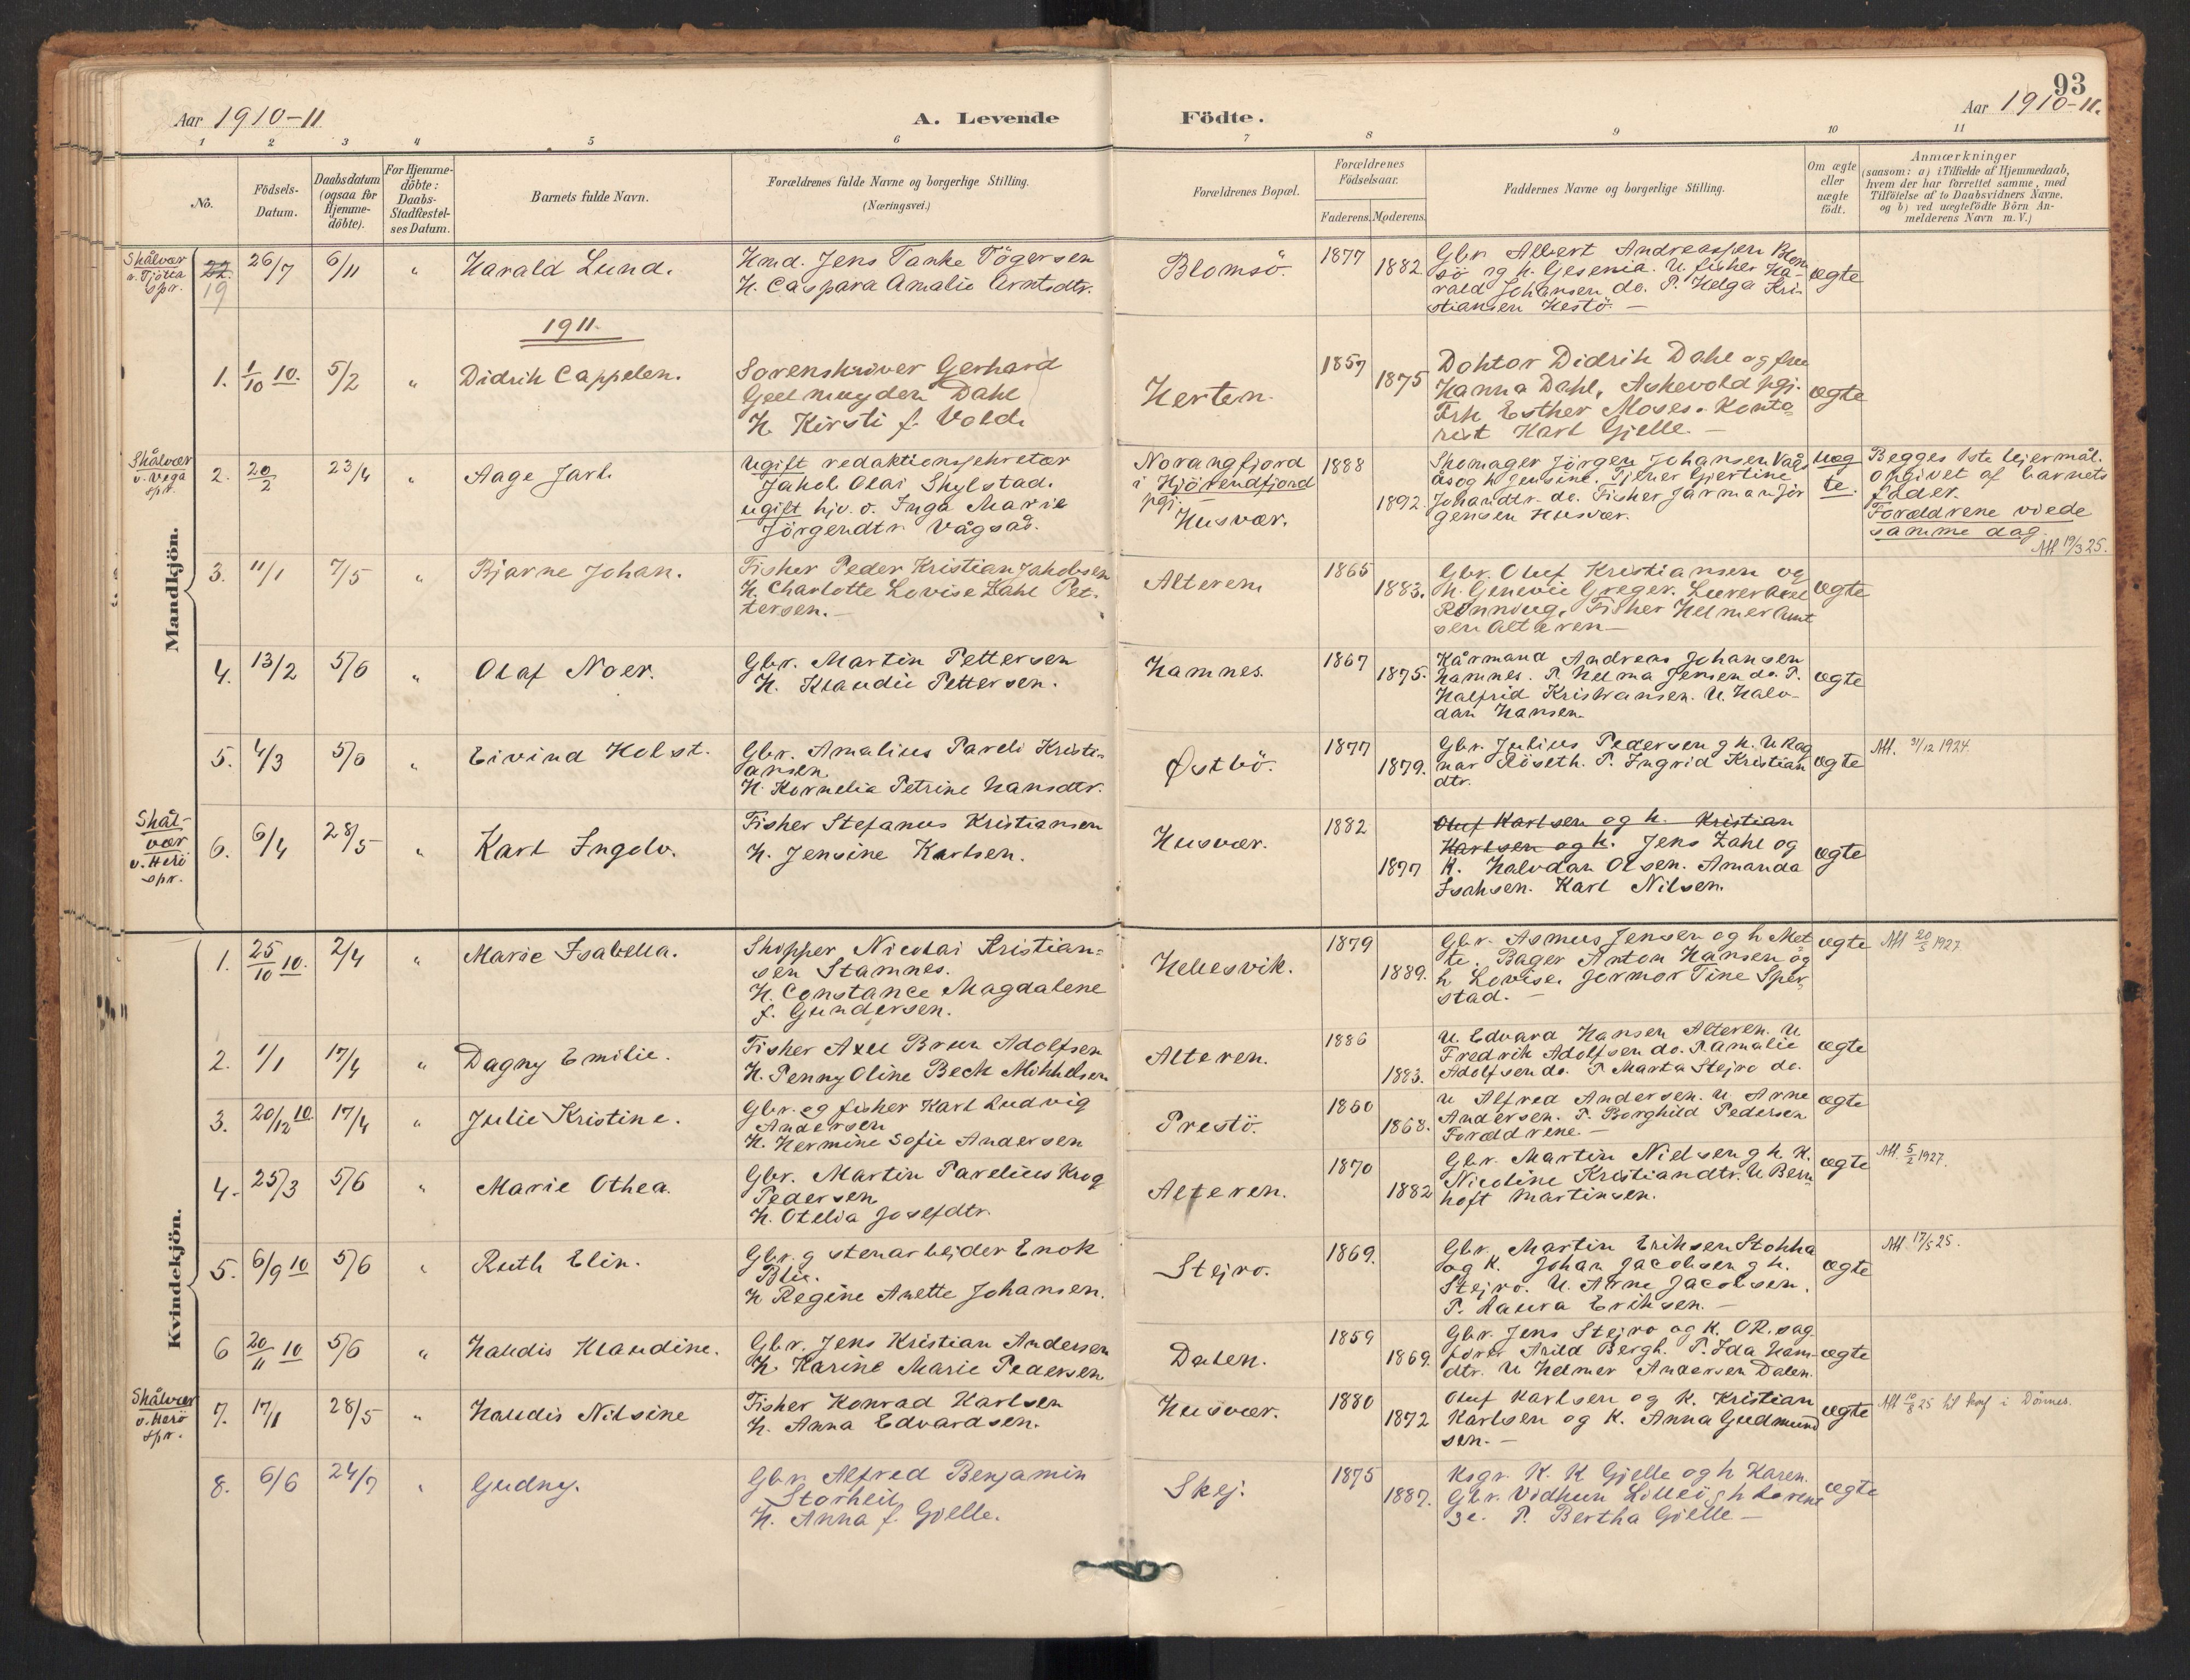 93
Aar 1910-11.
A. Levende Födte.
Aar 1910-11.
1 2 3 4 5 6 7 8 9 10 11
No.
Födsels-
Datum.
Daabsdatum
(ogsaa for
Hjemme-
döbte).
For Hjemme-
döbte:
Daabs-
Stadfæstel-
ses Datum.
Barnets fulde Navn.
Forældrenes fulde Navne og borgerlige Stilling.
(Næringsvei.)
Forældrenes Bopæl.
Forældrenes
Födselsaar.
Faderens. Moderens.
Faddernes Navne og borgerlige Stilling.
Om ægte
eller
uægte
født.
Anmærkninger
(saasom: a) i Tilfælde af Hjemmedaab,
hvem der har forrettet samme, med
Tilföielse af to Daabsvidners Navne,
og b) ved uægtefödte Börn An-
melderens Navn m. V.)
Mandkjön.
Skålvær
v. Tjötta
spr.
22.
19
26/7 6/11 "
Harald Lund.
Kmd. Jens Tanke Tögersen
H. Caspara Amalie Arntsdtr.
Blomsö.
1877
1882.
Gbr. Albert Andreassen Blom
sö og h. Gesenia. U. fisker Ha-
rald Johansen do. P. Helga Kri-
stiansen Hestö. —
ægte
1911.
1. 1/10 10. 5/2 "
Didrik Cappelen.
Sorenskriver Gerhard
Geelmuyden Dahl
H. Kirsti f. Vold.
Herten.
1857
1875
Doktor Didrik Dahl og fru
Hanna Dahl, Askevold pgj.
Frk Esther Moses. Konto-
rist Karl Gjelle. —
ægte
Skålvær
v. Vega
spr.
2. 20/2 23/4 "
Aage Jarl.
Ugift redaktionssekretær
Jakob Olai Skylstad.
ugift hjv. o. Inga Marie
Jörgendtr. Vågsås.
Norangfjord
i Hjörendfjord
pgj.
Husvær.
1888
1892.
Skomager Jörgen Johansen Vågs
ås og h Jensine. Tjener Gjertine
Johandtr. do. Fisker Jarman Jör
gensen Husvær.
uæg
te.
Begges 1ste leiermål.
opgivet af barnets
fader.
Forældrene viede
samme dag.
Att 19/3 25.
3. 11/1 7/5 "
Bjarne Johan.
Fisker Peder Kristian Jakobsen
H. Charlotte Lovise Zahl Pet-
tersen. —
Alteren.
1865
1883.
Gbr. Oluf Kristiansen og
h. Genevie Greger. Lærer Axel
Rönning, Fisker Helmer Arnt
sen Alteren —
ægte
4. 13/2 5/6 "
Olaf Noer.
Gbr. Martin Pettersen
H. Klaudie Pettersen.
Hamnes.
1867
1875.
Kårmand Andreas Johansen
Hamnes. P. Helma Jensen do. P.
Halfrid Kristiansen. U. Halv-
dan Hansen.
ægte
5. 4/3 5/6 "
Eivind Holst.
Gbr. Amalius Pareli Kristi-
ansen.
H. Kornelia Petrine Hansdtr.
Østbö.
1877
1879.
Gbr. Julius Pedersen g h. U. Rag
nar Röseth. P. Ingrid Kristian
dtr.
ægte
Att. 31/12 1924.
Skål-
vær
v. Herö
spr.
6. 6/4 28/5 "
Karl Ingolv.
Fisker Stefanus Kristiansen
H. Jensine Karlsen.
Husvær.
1882
1877
Oluf Karlsen og h. Kristian
Karlsen og h. Jens Zahl og
K. Halvdan Olsen. Amanda
Isaksen. Karl Nilsen.
ægte
Kvindekjön.
1. 25/10 10. 2/4 "
Marie Isabella.
Skipper Nicolai Kristian-
sen Stamnes.
H. Constance Magdalene
f. Gundersen.
Hellesvik.
1879
1889.
Gbr. Asmus Jensen og h Met
te. Bager Anton Hansen og
h Lovise. Jormor Tine Sper-
stad. —
ægte
Att 20/5 1927.
2. 1/1 17/4 "
Dagny Emilie.
Fisker Axel Brun Adolfsen
H. Penny Oline Beck Mikkelsen
Alteren.
1886
1883.
U. Edvard Hansen Alteren. U.
Fredrik Adolfsen do. P. Amalie
Adolfsen do. P Marta Stejro do.
ægte
3. 20/12 10. 17/4 "
Julie Kristine.
Gbr. og fisker Karl Ludvig
Andersen
H. Hermine Sofie Andersen
Prestö.
1860
1868.
U Alfred Andersen. U. Arne
Andersen. P. Borghild Pedersen
Forældrene. —
ægte
4. 25/3 5/6 "
Marie Othea.
Gbr. Martin Parelius Krog
Pedersen
H. Otelia Josefdtr.
Alteren.
1870
1882
Gbr. Martin Nielsen g h. K.
Nicoline Kristiandtr. U Bern
hoft Martinsen.
ægte
Att. 5/2 1927.
5. 6/9 10 5/6 "
Ruth Elin.
Gbr. g stenarbejder Enok
Blix.
H Regine Anette Johansen.
Stejro.
1869.
Gbr. Martin Eriksen Stokka
og K. Johan Jacobsen g h.
Stejro. U. Arne Jacobsen.
P. Laura Eriksen. —
ægte
Att 17/5 25.
6 20/11 10 5/6 "
Haldis Klaudine.
Gbr. Jens Kristian Andersen
H. Karine Marie Pedersen
Dalen.
1859
1869.
Gbr. Jens Stejro og K. OR. sag
förer Arild Bergh. P. Ida Hans-
dtr. U Helmer Andersen Dalen.
ægte
Skålvær
v. Herö
spr.
7. 17/1 28/5 "
Haldis Nilsine
Fisker Konrad Karlsen
H. Anna Edvardsen.
Husvær.
1880
1872
Oluf Karlsen og K. Kristian
Karlsen og K. Anna Gudmund
sen. —
ægte
Att 10/8 25 til konf i Dönnes.
8. 6/6 24/7 "
Gudny.
Gbr. Alfred Benjamin
Storheil
H. Anna f. Gjelle.
Skej.
1875
1887.
Ksgr. K. K Gjelle og h Karen.
Gbr. Vidkun Lilleö g h Loren
se. P. Bertha Gjelle —
ægte